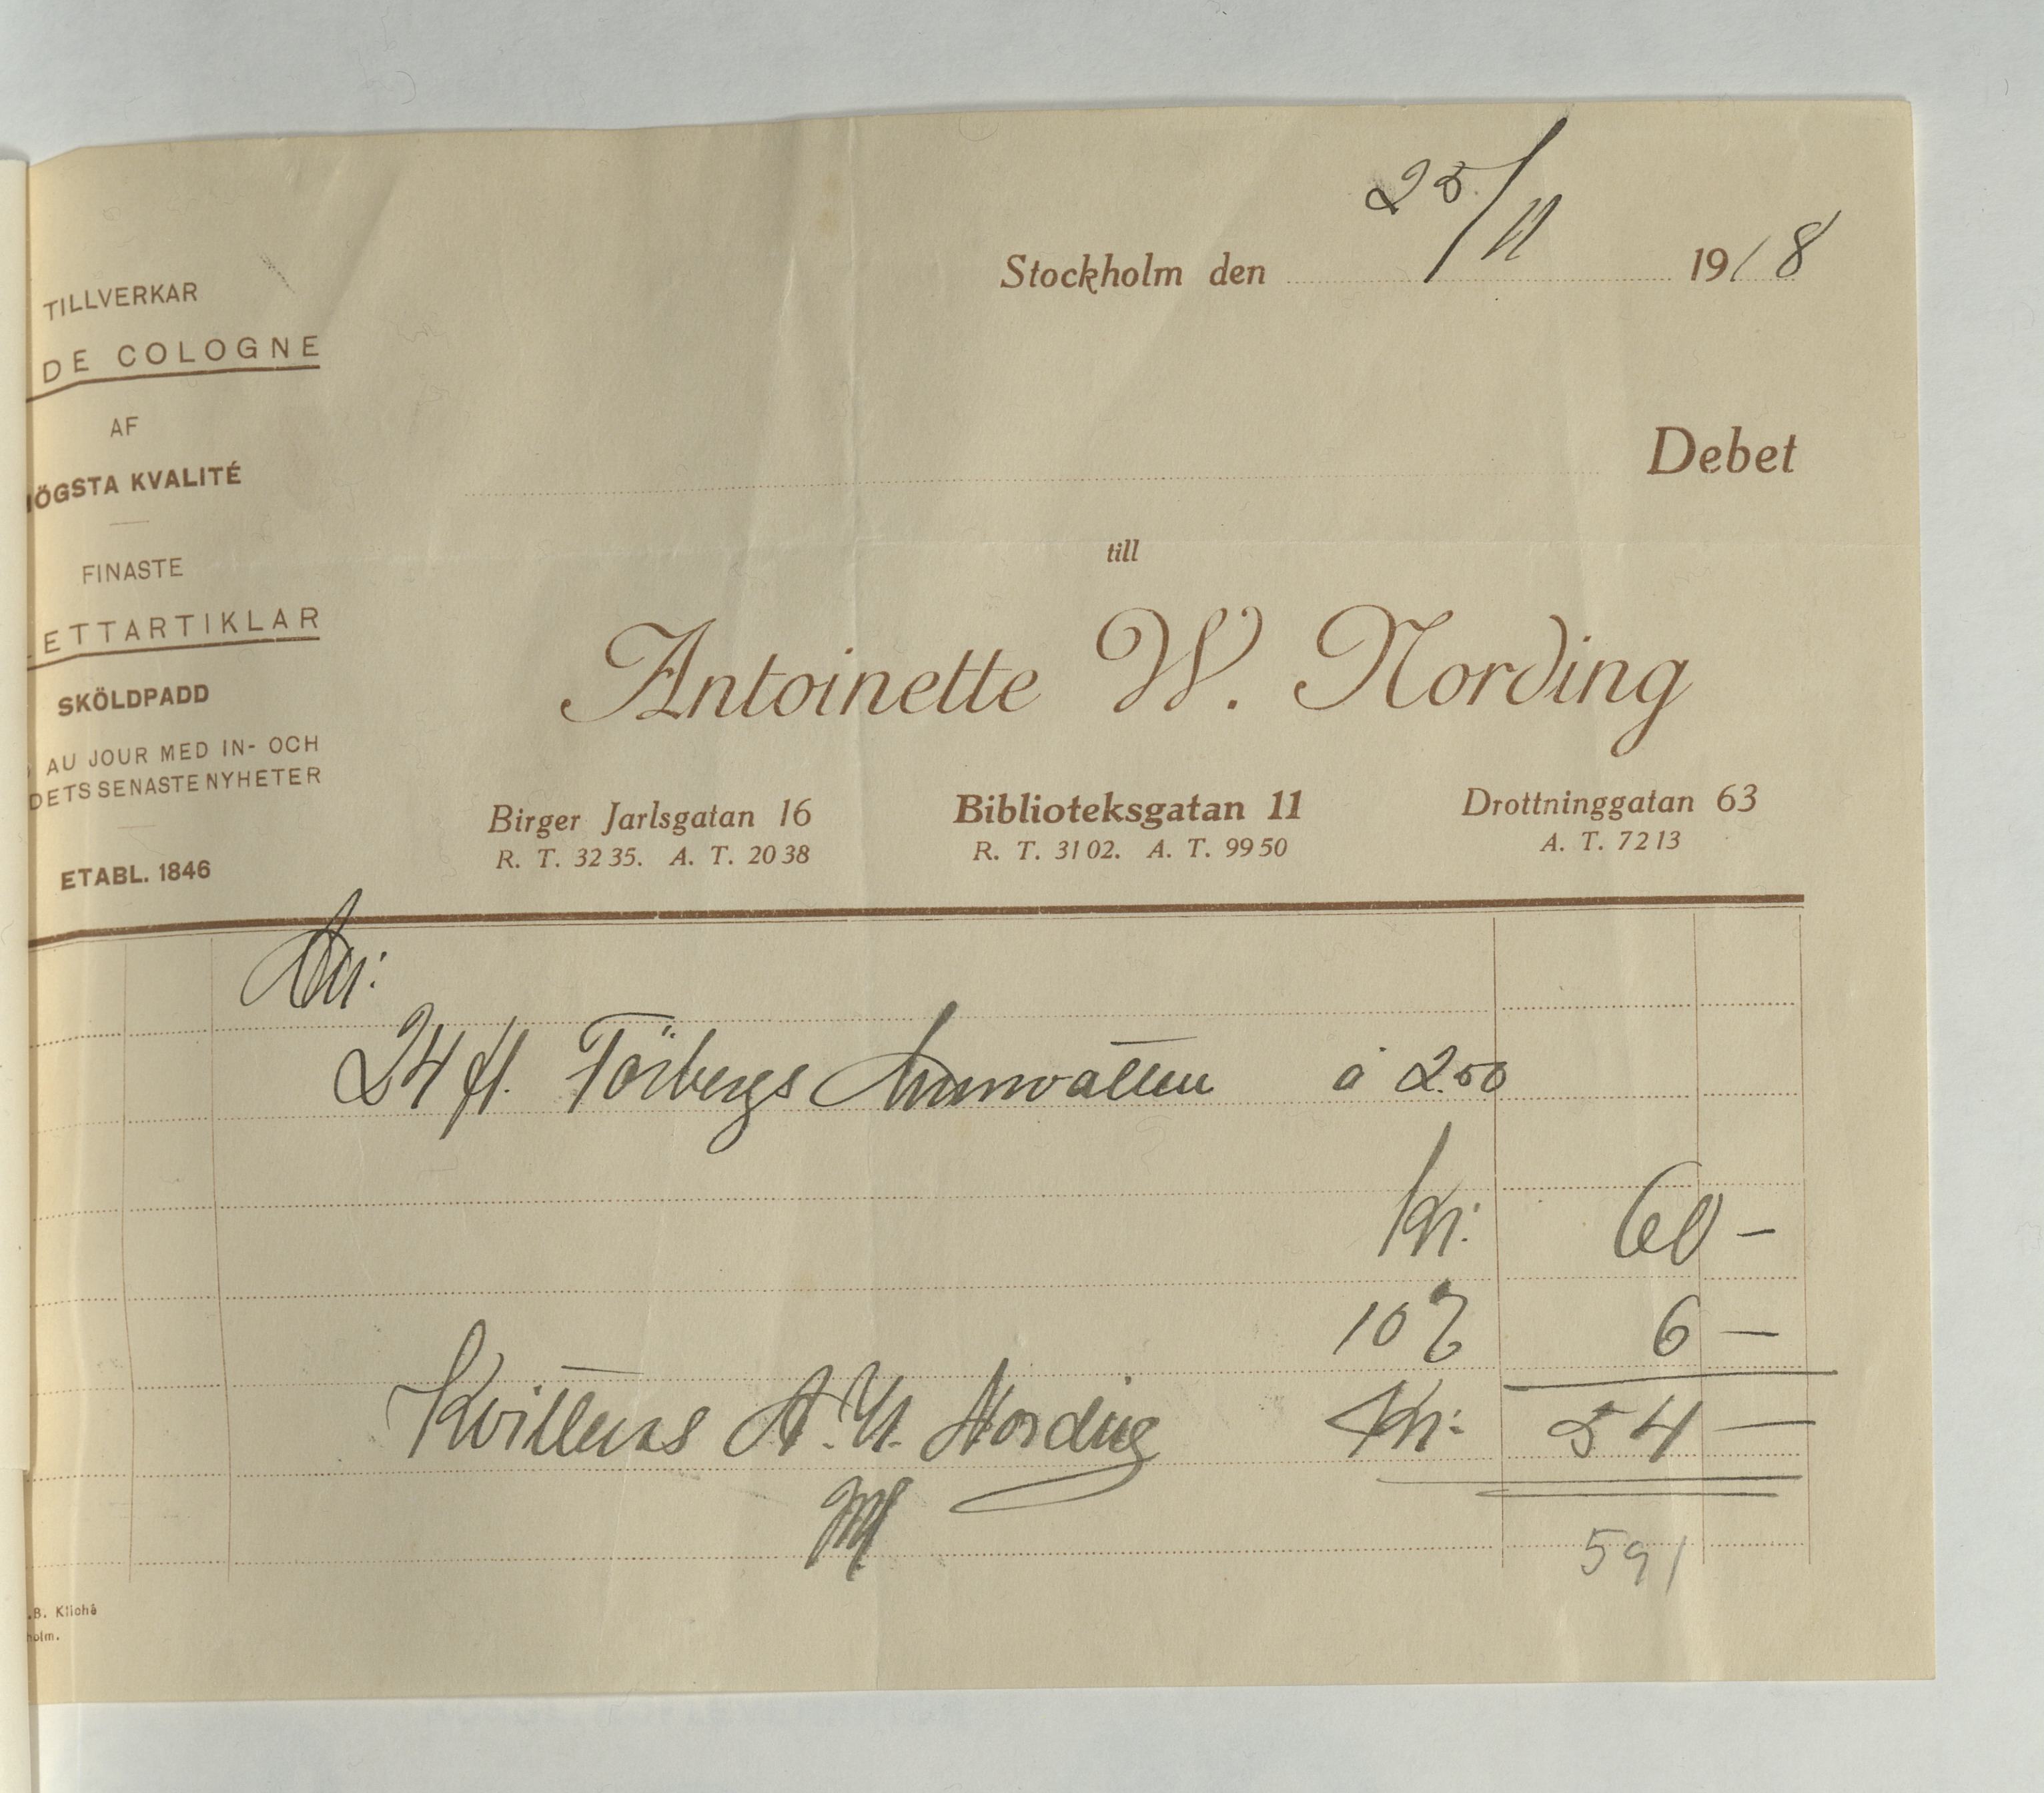 Stockholm den 25/11 1918
TILLVERKAR
DE COLOGNE
AF
HÖGSTA KVALITÉ
FINASTE
LETTARTIKLAR
SKÖLDPADD
AU JOUR MED IN- OCH
DETS SENASTE NYHETER
ETABL. 1846
Debet
till
Antoinette W. Nording
Birger Jarlsgatan 16
R. T. 32 35. A. T. 20 38
Biblioteksgatan 11
R. T. 31 02. A. T. 99 50
Drottninggatan 63
A. T. 72 13
24 fl. à 2.50
Kr: 60 –
10 % 6 –
Kvitteras A. W. Nording Kr: 54 –
591
.B. Kliché
holm.